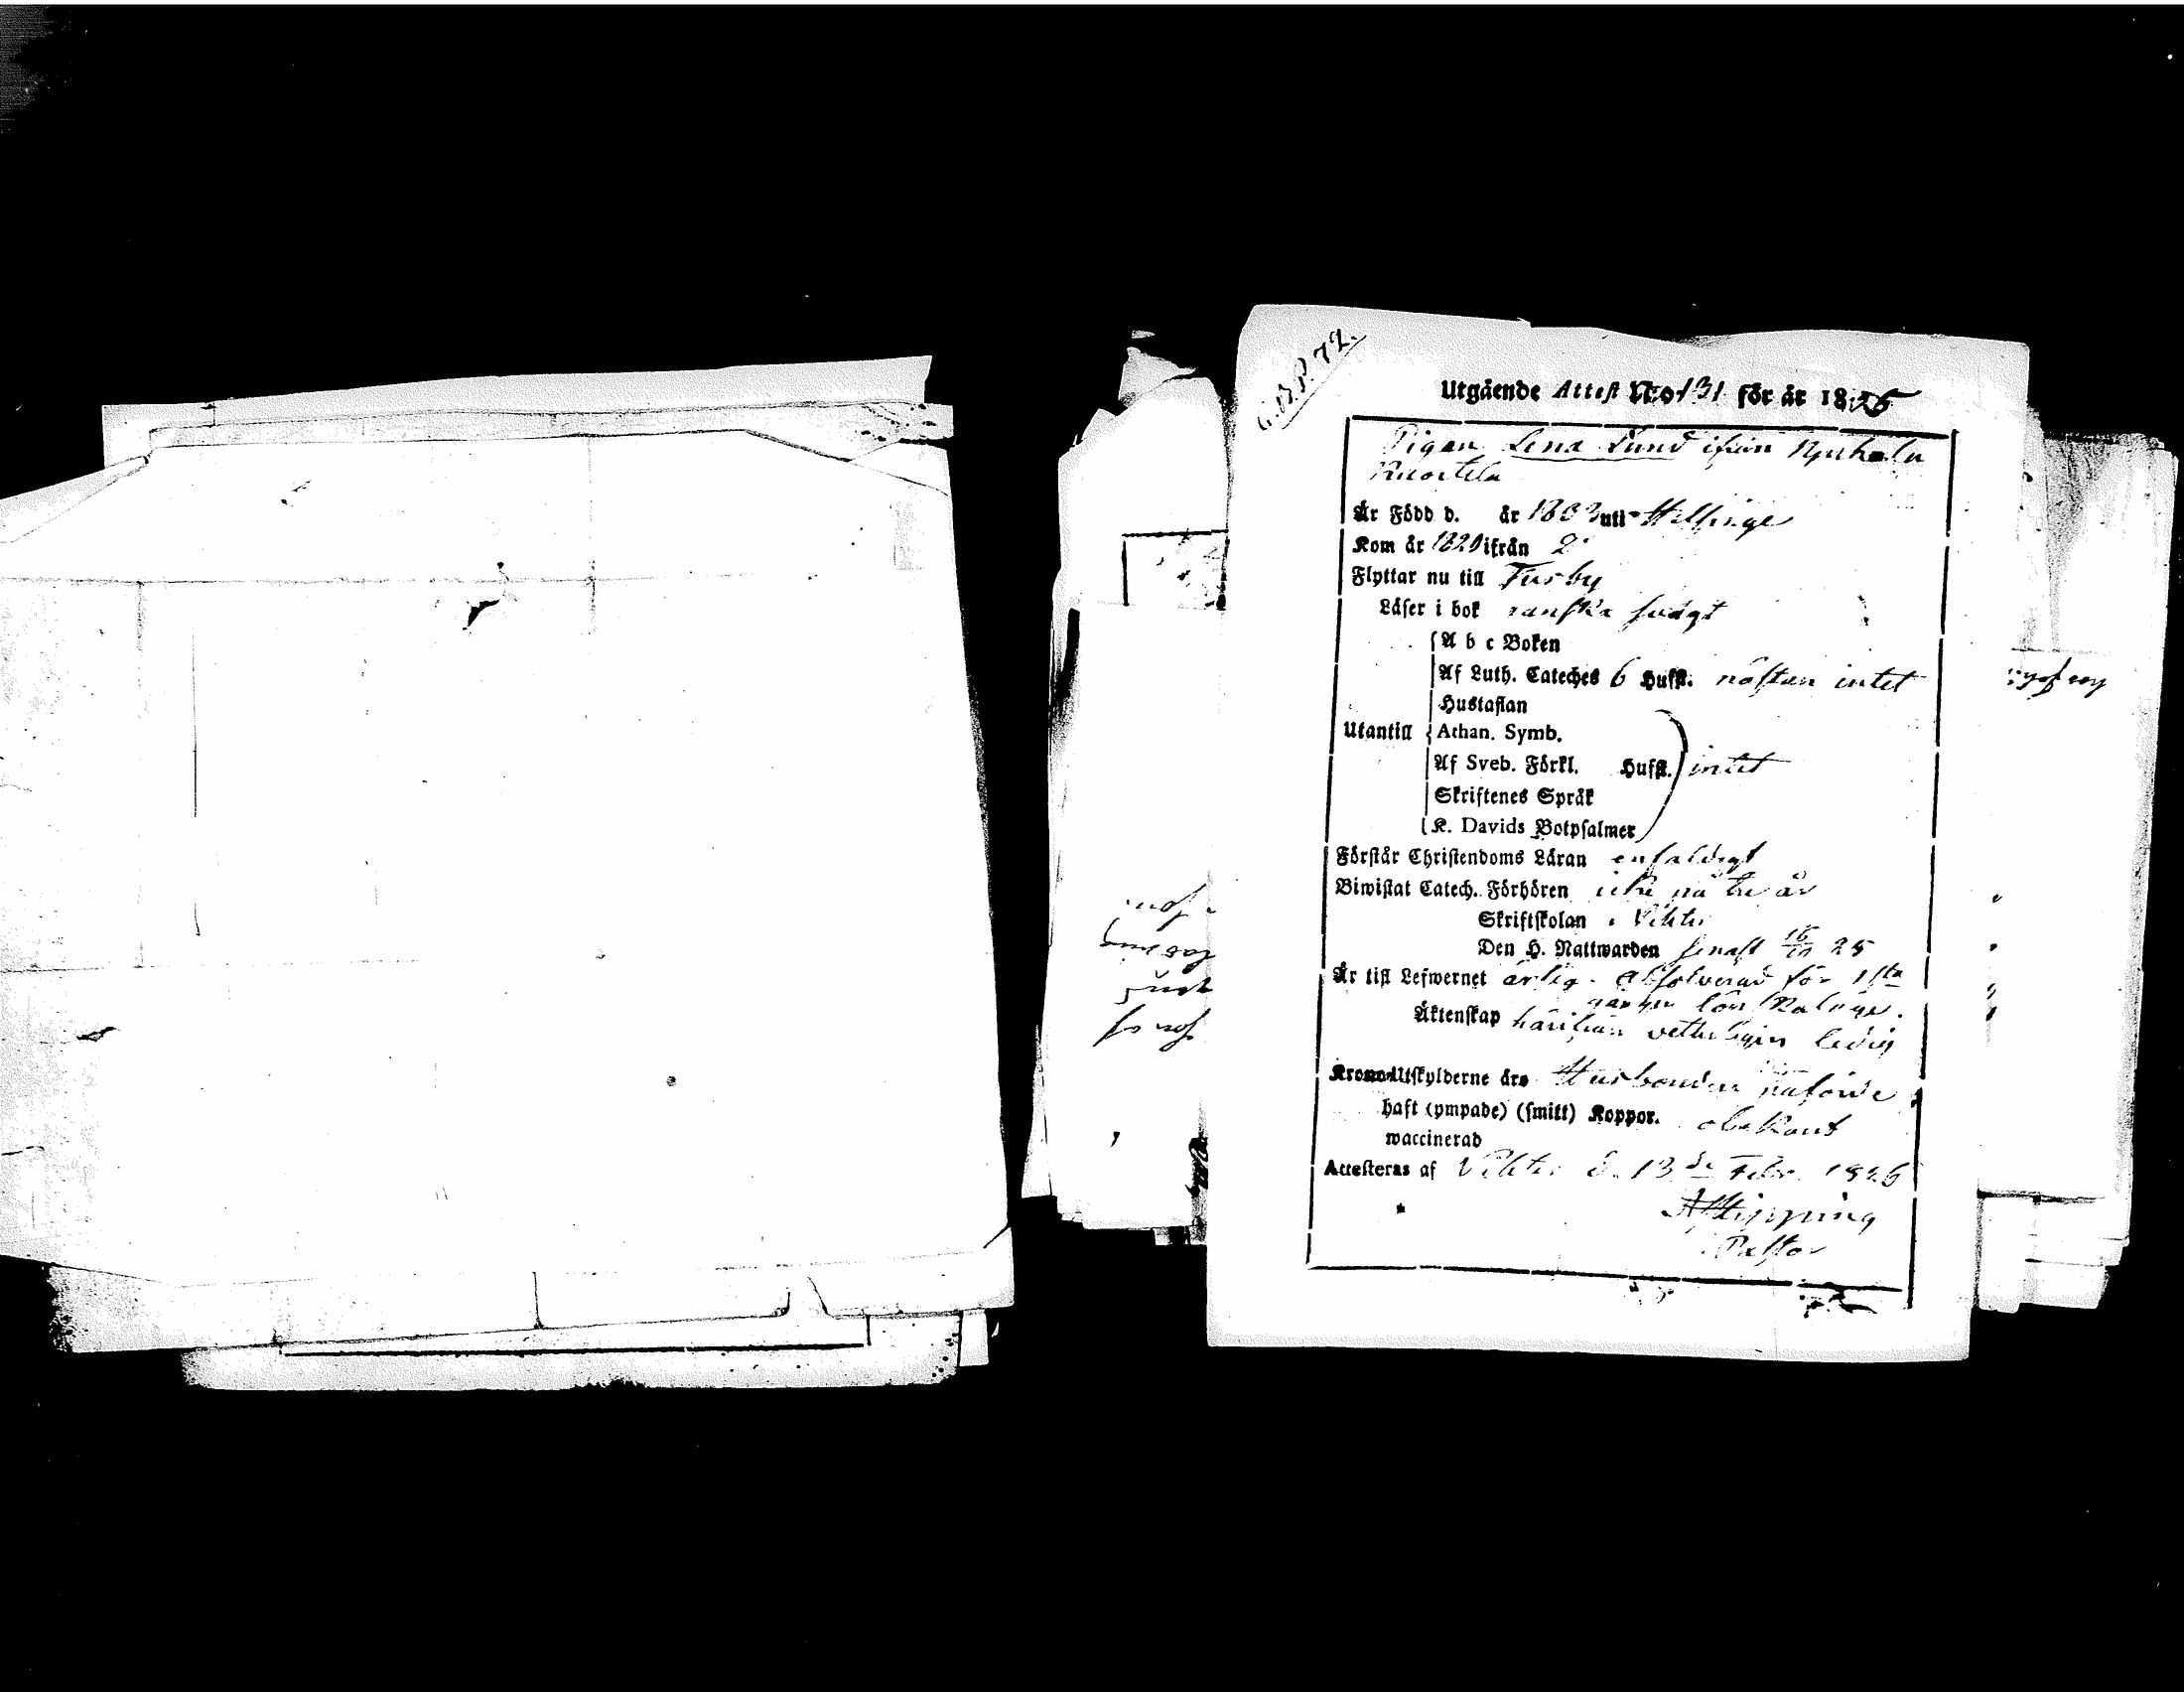 C.B.P. 72.
Utgående Attest No 131 för år 1826
Pigan Lena Lund ifrån Nyuhala
Ruortila
Är Född d. år 1803 uti Helsinge
Kom år 1820 ifrån
Flyttar nu till Tusby
Läser i bok ganska svagt
A b c Boken
Af Luth. Cateches 6 Hufst. nästan intet
Hustaflan
Utantill Athan. Symb.
Af Sveb. Förkl. Hufst. intet
Skriftenes Språk
K. Davids Botpsalmer
Förstår Christendoms Läran enfaldigt
Biwistat Catech. Förhören icke på tre år
Skriftskolan i Vichtis
Den H. Nattwarden senast 25
Är till Lefwernet ärlig. absolverad för 1sta
gången lönskaläge.
Äktenskap härifrån vetterligen ledig
Krono-Utskylderne äro Husbonden påförde
haft (ympade) (smitt) Koppor. obekant
waccinerad
Attesteras af Vichtis d. 13de Febr. 1826
Hipping
Pastor